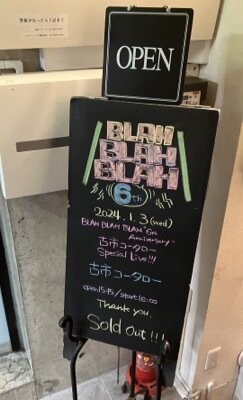 OPEN
BLAH
BLAH
BLAH
6th
2024.1.3(wed)
BLAH BLAH BLAH "6th
Anniversary"
古市コータロー
Special Live!!!
古市コータロー
open 15:15/start 16:00
Thank you,
Sold Out!!!